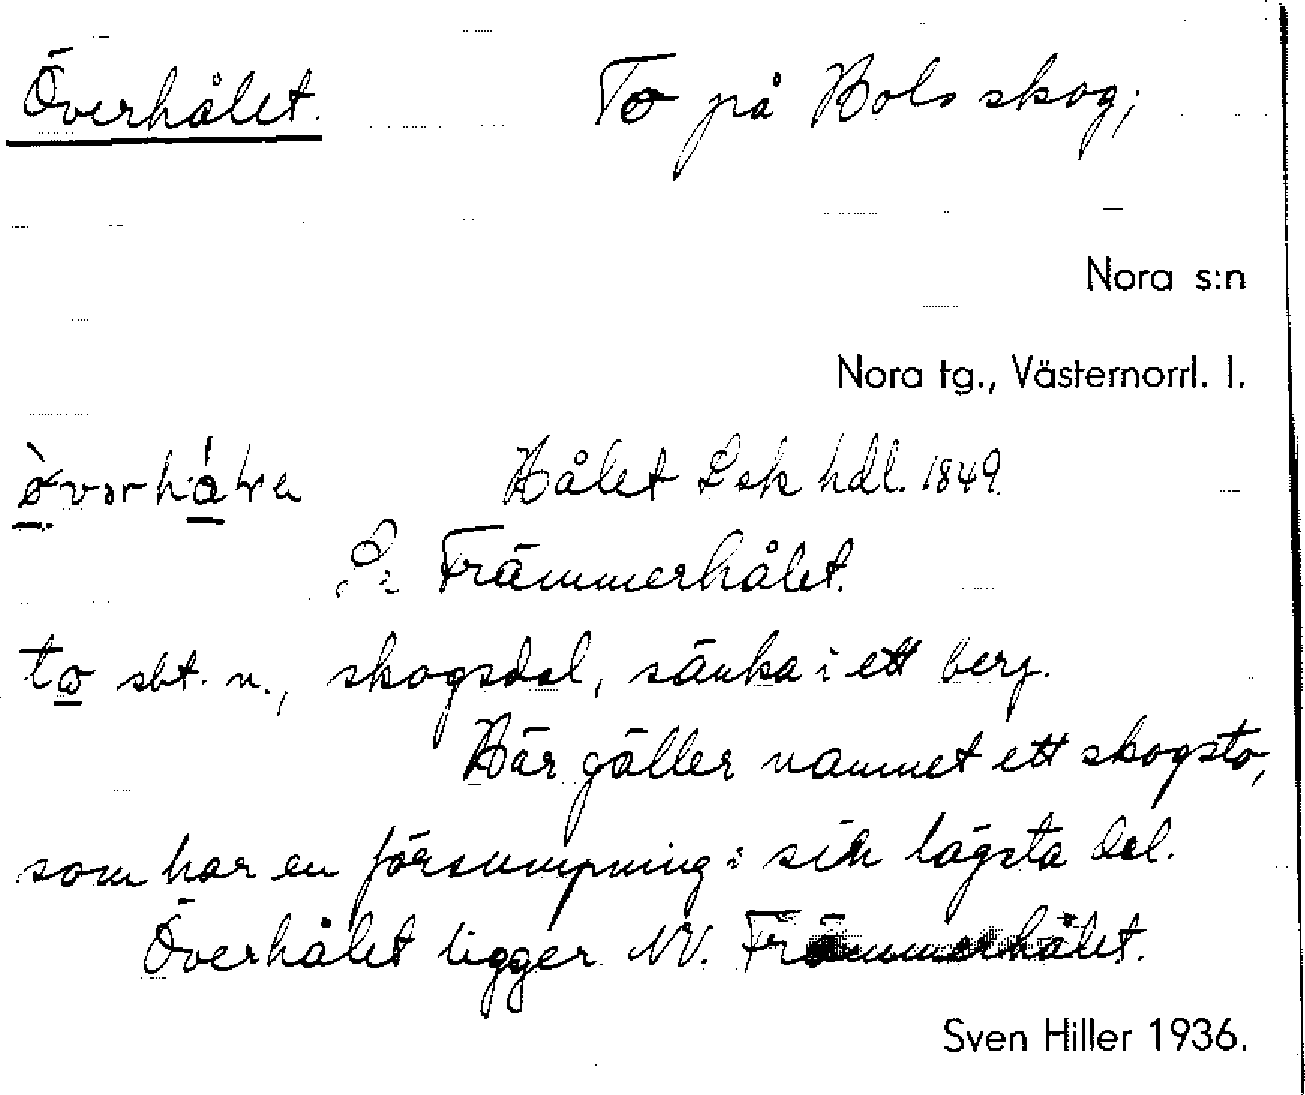 Överhålet. To på Hols skog;
Nora s:n
Nora tg., Västernorrl. l.
Hålet Lsk hdl. 1849.
Främmerhålet.
to sbt. n., skogsdal, sänka i ett berg.
Här gäller namnet ett skogsto,
som har en försumpning i sin lägsta del.
Överhålet ligger NV. Främmerhålet.
Sven Hiller 1936.